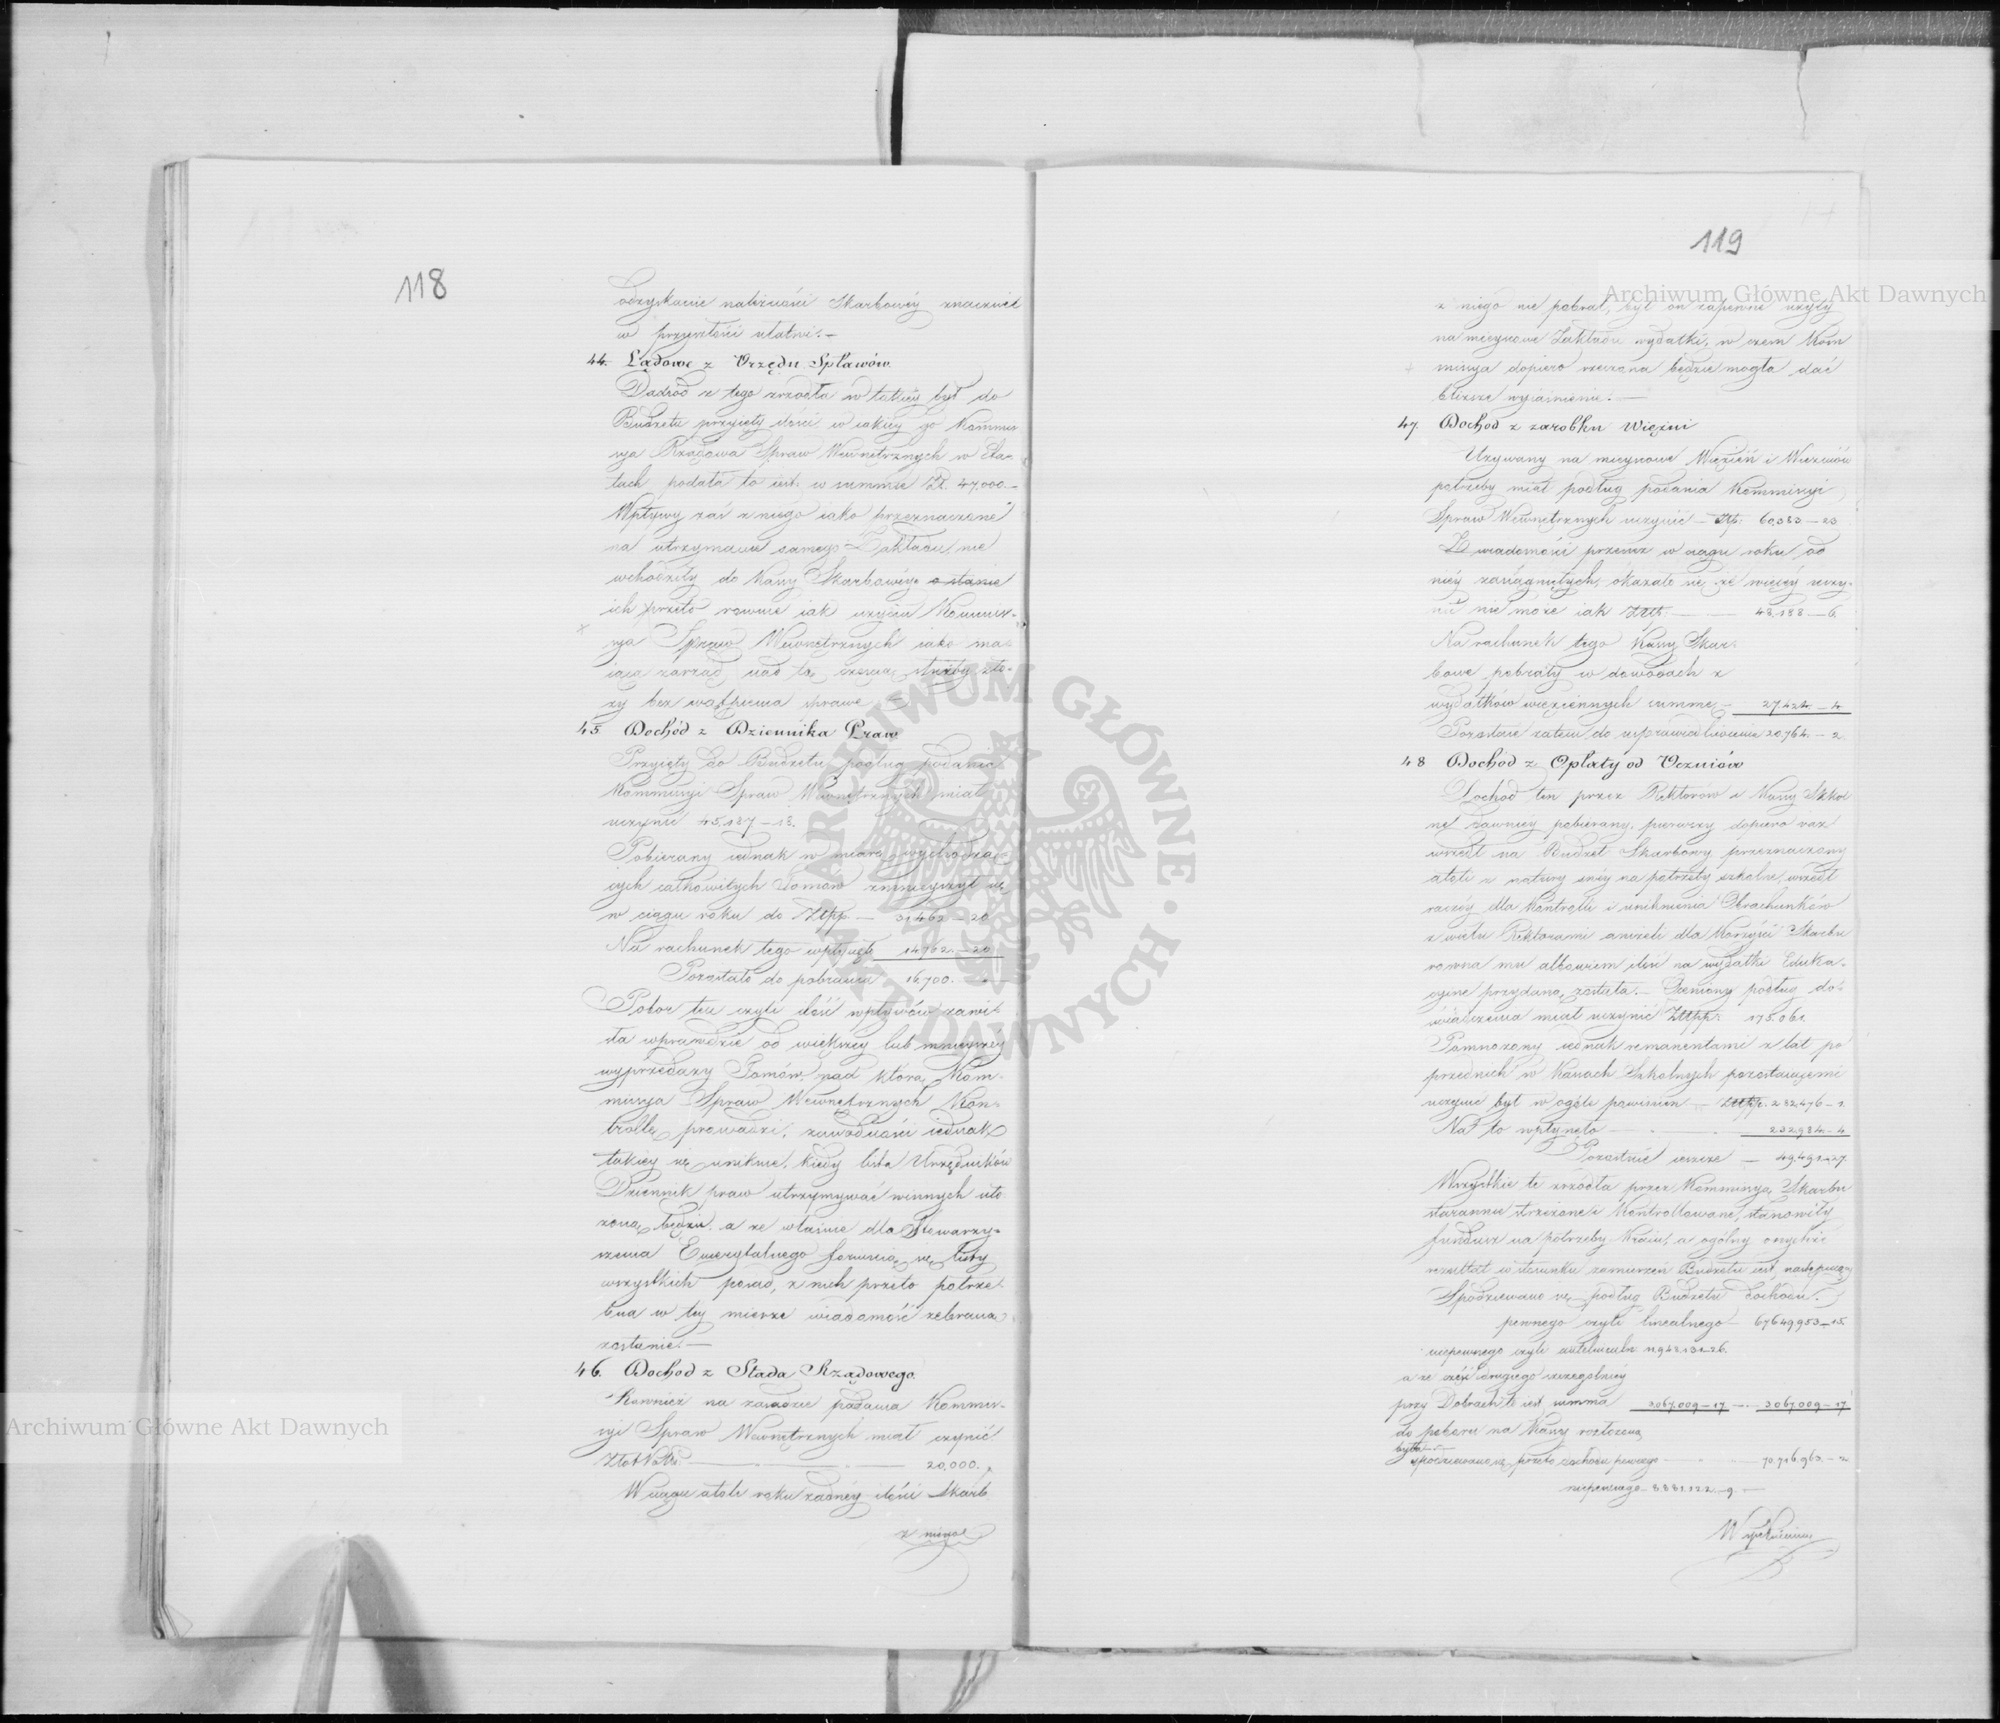 118
odzyskanie należności Skarbowéy znacznie
w przyszłości ułatwi.—
44. Lądowe z Urzędu Spławów.
Dochód z tego zrzódła w takiéy był do
Budżetu przyięty ilości, w iakiéy go Kommis
sya Rządowa Spraw Wewnętrznych w Eta-
tach podała to iest. w summie Zł. 47,000.—
Wpływy zaś z niego iako przeznaczone
na utrzymanie samego Zakładu nie
wchodziły do Kassy Skarbowéy. o stanie
ich przeto rownie iak użyciu Kommis-
sya Spraw Wewnętrznych iako ma-
iąca zarząd nad tą częścią służby zło-
ży bez wątpienia sprawę.—
45. Dochód z Dziennika Praw
Przyięty do Budżetu podług podania
Kommissyi Spraw Wewnętrznych miał
uczynić 45,187—13.
Pobierany iednak w miarę wychodzą-
cych całkowitych Tomów zmnieyszył się
w ciągu roku do Złpp.— 31,463—20
Na rachunek tego wpłynęło 14,762.—20
Pozostało do pobrania 16,700.—
Pobor ten czyli ilość wpływów zawi-
sła wprawdzie od większey lub mnieyszéy
wyprzedaży Tomów, nad którą Kom-
missya Spraw Wewnętrznych Kon-
trollę prowadzi; zawodności iednak
takiey się uniknie, kiedy lista Urzędników
Dziennik praw utrzymywać winnych uło
żoną będzie. a ze właśnie dla Stowarzy-
szenia Emerytalnego formuią się listy
wszystkich posad, z nich przeto potrze-
bna w tey mierze wiadomość zebraną
zostanie.—
46. Dochod z Stada Rządowego.
Rownież na zasadzie podania Kommis-
syi Spraw Wewnętrznych miał czynić
20,000.
W ciągu atoli roku żadnéy ilości Skarb
z niego
119
z niego nie pobrał, był on zapewne użyty
na mieyscowe Zakładu wydatki, w czem Kom
missya dopiero rzeczona będzie mogła dać
bliższe wyiaśnienie.—
47. Dochod z zarobku Więzni
Używany na mieyscowe Więzień i Więzniów
potrzeby miał podług podania Kommissyi
Spraw Wewnętrznych uczynić — Złp. 60,383—23
Z wiadomości przecież w ciągu roku od
niéy zasiągniętych, okazało się że więcéy uczy-
nić nie może iak Złp.— 48,188—6.
Na rachunek tego Kassy Skar-
bowe pobrały w dowodach z
wydatków więziennych summę— 27,424.—4.
Pozostaie zatem do usprawiedliwienia 20,764.—2.
48 Dochód z Opłaty od Uczniów
Dochod ten przez Rektorów i Kassy Szkol
ne dawniey pobierany, pierwszy dopiero raz
wszedł na Budżet Skarbowy, przeznaczony
atoli z natury swéy na potrzeby szkolne, wszedł
raczéy dla Kontrolli i uniknienia Obrachunków
z wielu Rektorami aniżeli dla Korzyści Skarbu
rowna mu albowiem ilość na wydatki Eduka-
cyine przydaną została.— Ceniony podług do-
świadczenia miał uczynić Złpp: 175,061.
Pomnożony iednak remanentami z lat po
przednich w Kassach Szkolnych pozostaiącemi
uczynić był w ogóle powinien — Złpp. 282,476—2
Na to wpłynęło — 232,984—4
Pozostaie ieszcze — 49,491—27.
Wszystkie te zrzódła przez Kommissyą Skarbu
starannie strzeżone i Kontrollowane, stanowiły
fundusz na potrzeby Kraiu, a ogólny onychże
rezultat w stosunku zamierzeń Budżetu iest następuiący
Spodziewano się podług Budżetu dochodu.
pewnego czyli linealnego 67,649,953—15.
niepewnego czyli antelinealn. 11,948,131—26.
a ze część drugiego szczególniéy
przy Dobrach to iest summa 3,067,009—17 — 3,067,009—17
do poboru na Kassy rozłożoną
była
spodziewano się przeto dochodu pewnego — 70,716,963.—2
niepewnego— 8,881,122.—9.—